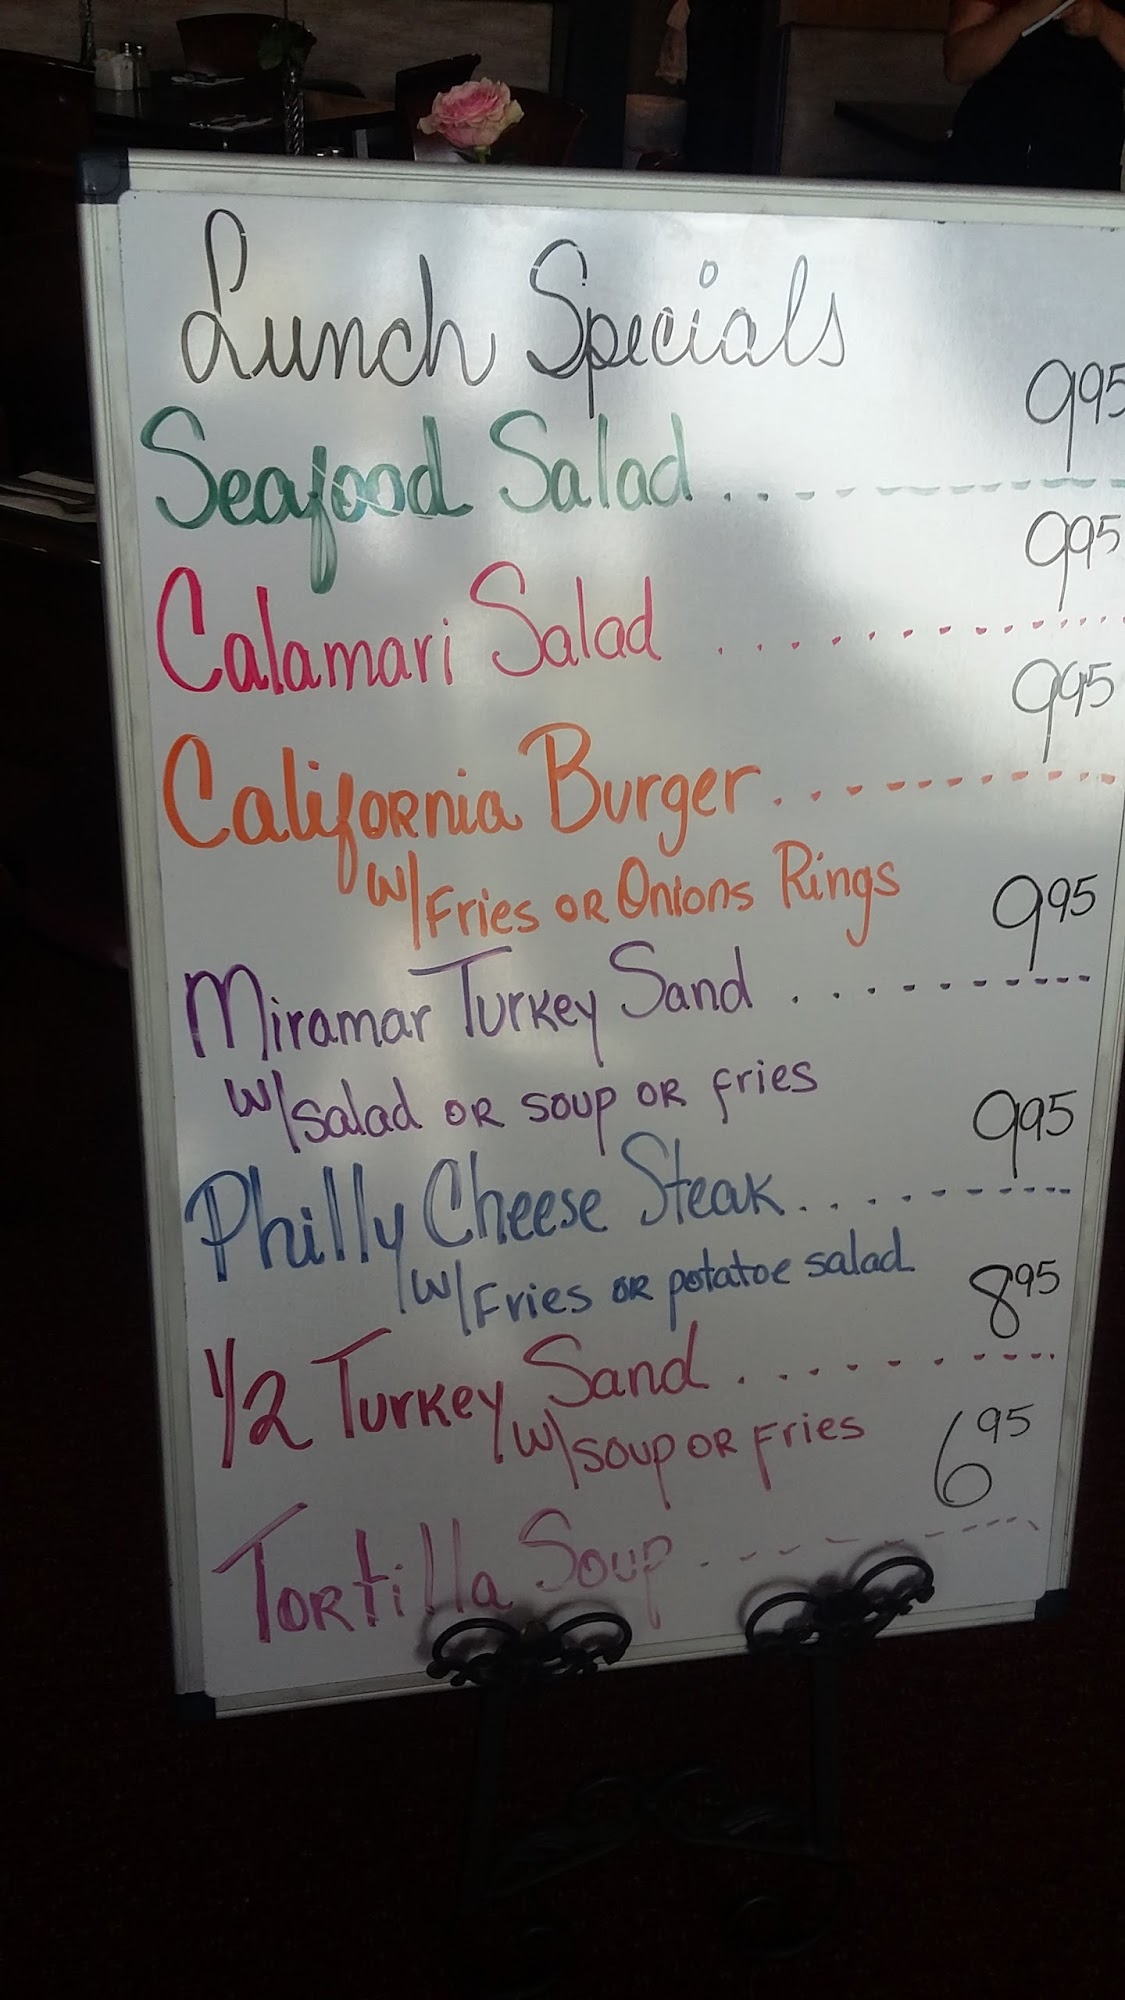 Lunch Specials
Seafood Salad ............ 9 95
Calamari Salad ............ 9 95
California Burger ............ 9 95
w/Fries OR Onions Rings
Miramar Turkey Sand .......... 9 95
w/salad OR soup OR fries
Philly Cheese Steak .......... 9 95
w/Fries OR potatoe salad
1/2 Turkey Sand .......... 8 95
w/soup OR Fries
Tortilla Soup .......... 6 95